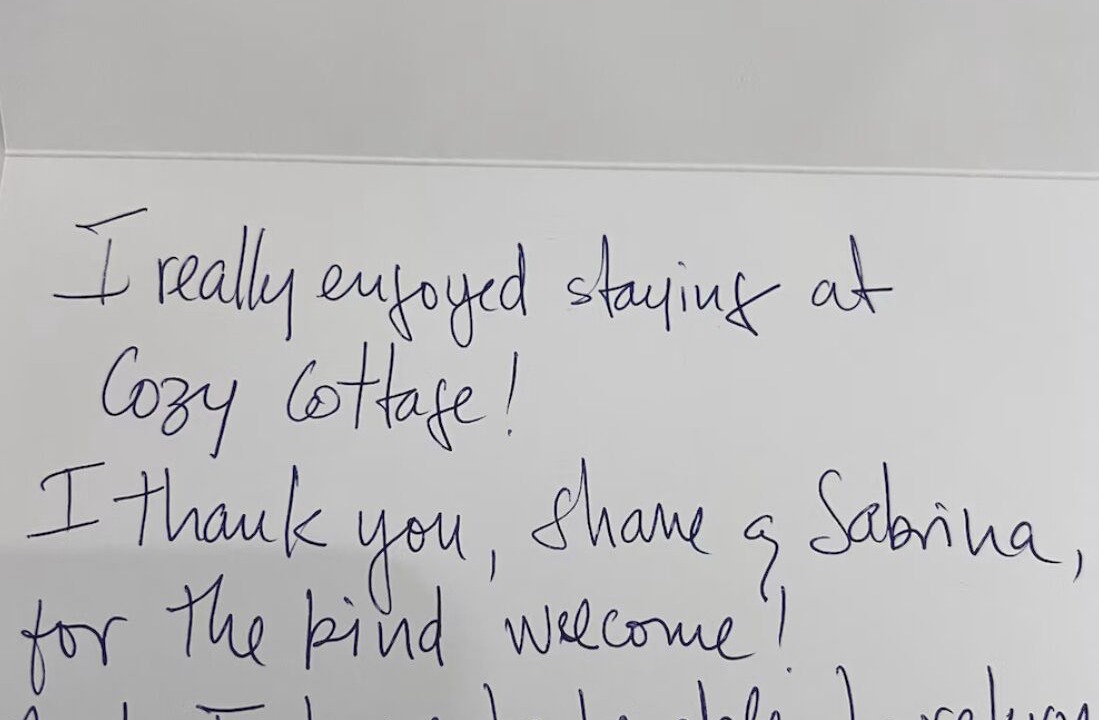 I really enjoyed staying at
Cozy Cottage!
I thank you, Shane & Sabrina,
for the kind welcome!